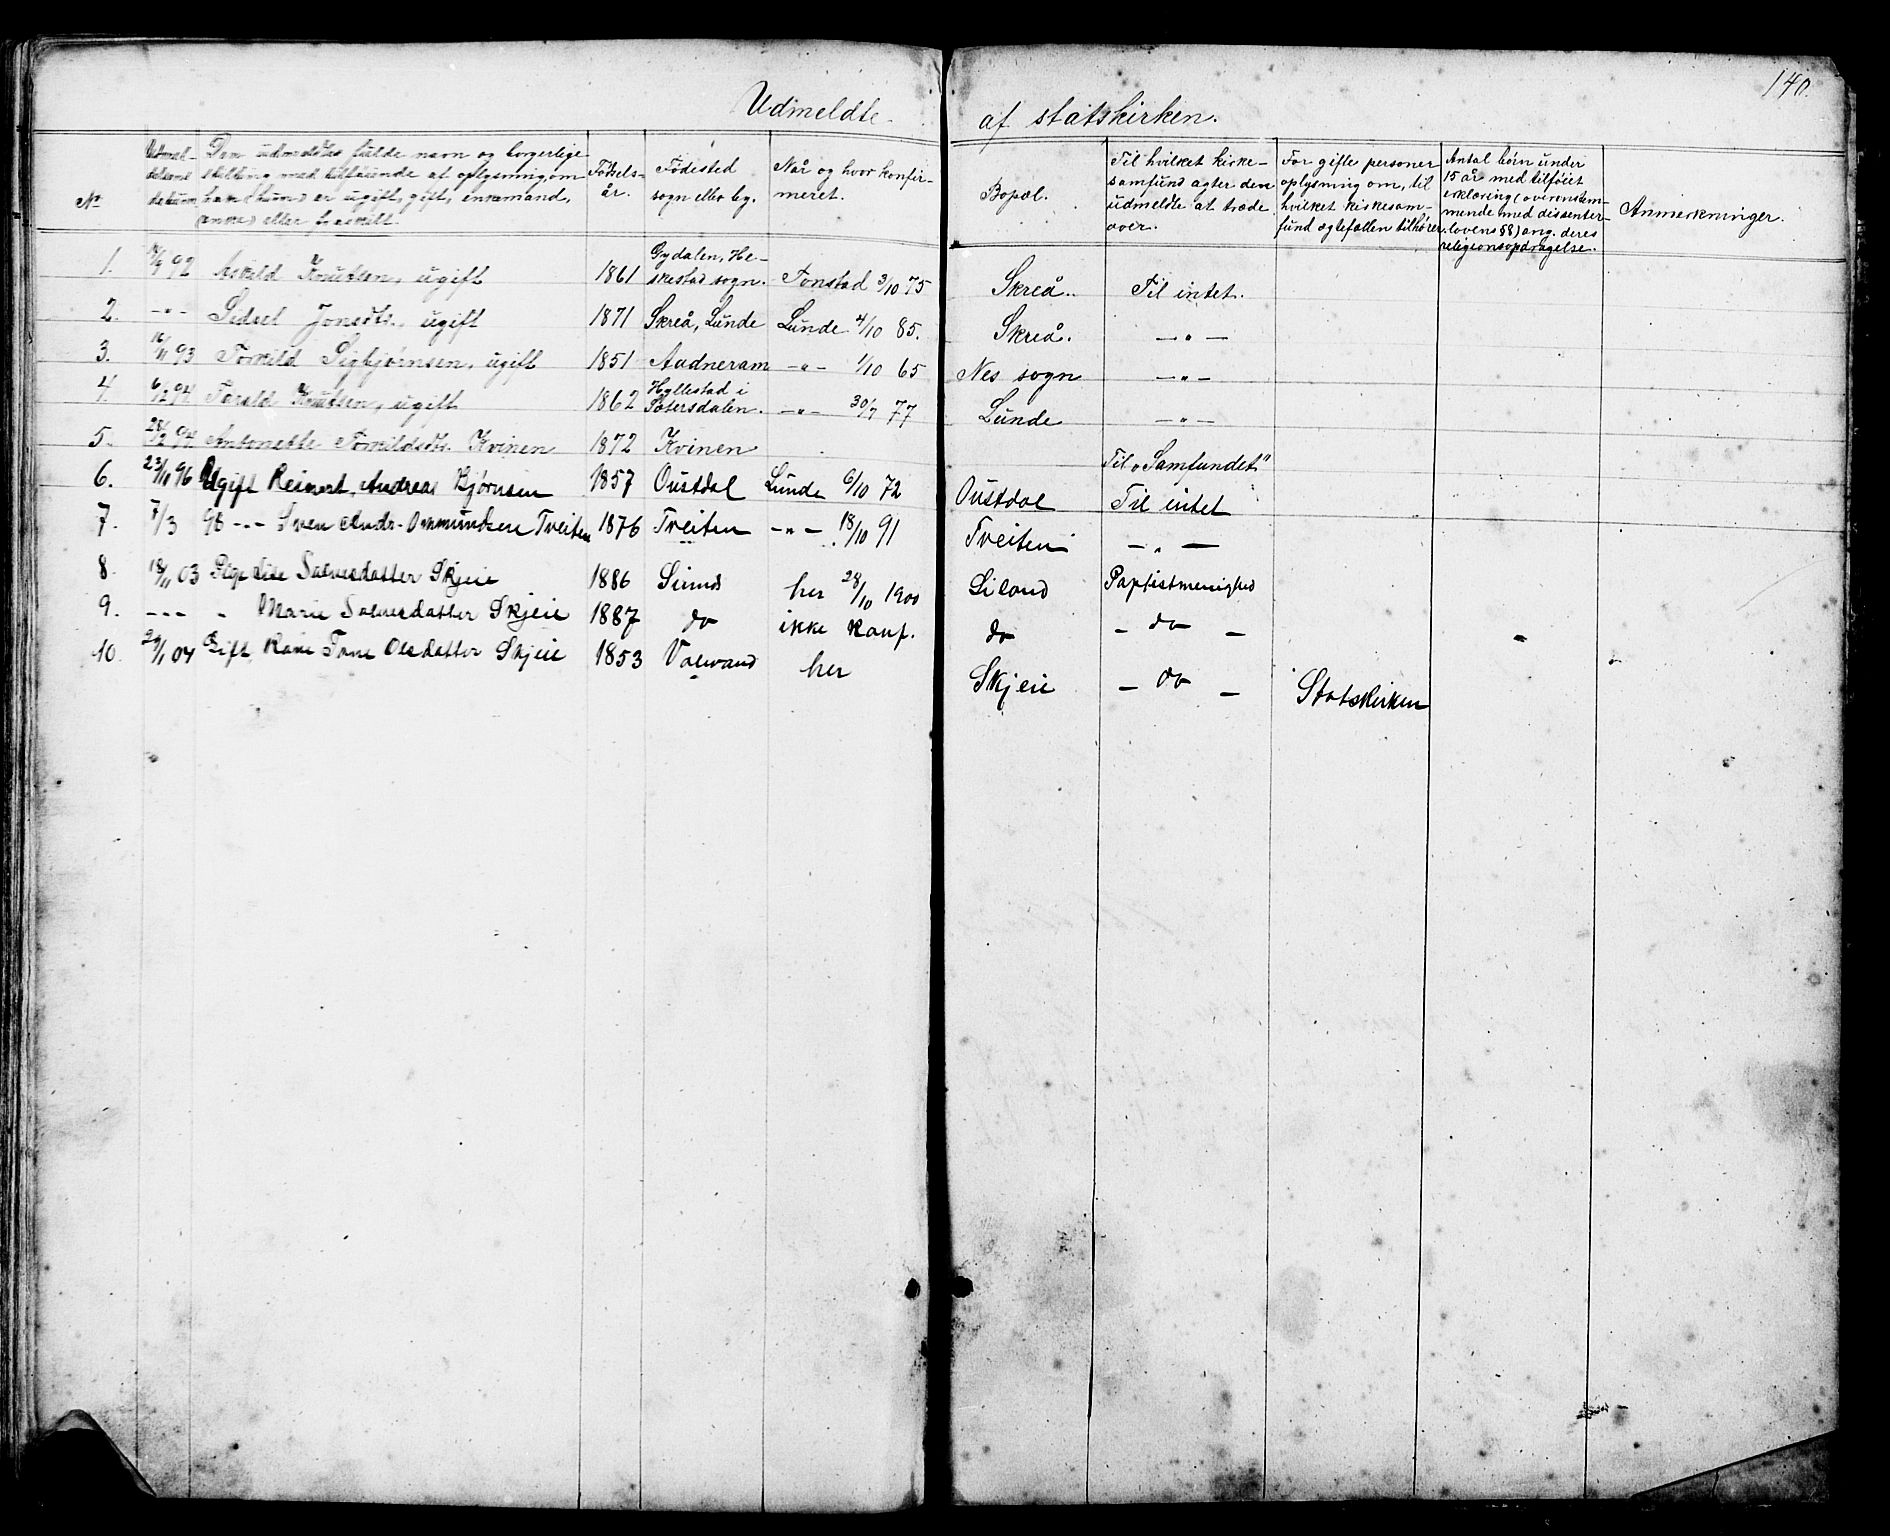 140.
Udmeldte af statskirken.
No
Udmeldelsesdatum.
Den udmeldtes fulde navn og borgerlige
stilling med tilføiende af oplysning, om
han (hun) er ugift, gift, enkemand,
(enke) eller fraskilt.
Fødsels-
år.
Fødested
sogn eller by.
Når og hvor konfir-
meret.
Bopæl.
Til hvilket kirke-
samfund agter den
udmeldte at træde
over.
For gifte personer
oplysning om, til
hvilket kirkesam-
fund ægtefællen tilhører.
Antal børn under
15 år med tilføiet
erklæring (overenstem-
mende med dissenter-
lovens § 8) ang. deres
religionsopdragelse.
Anmerkninger.
1. 92 Askild Knudsen, ugift 1861 Gydalen, He-
skestad sogn. Tonstad 3/10 75 Skreå. Til intet.
2. -"- Sidsel Jonsdtr., ugift 1871 Skreå, Lunde Lunde 4/10 85. Skreå. -"-
3. 16/11 93 Torkild Sigbjørnsen, ugift 1851 Aadneram -"- 1/10 65 Nes sogn -"-
4. 6/12 94 Torald Knudsen, ugift 1862 Hyllestad i
Sætersdalen. -"- 30/7 77 Lunde -"-
5. 28/12 94 Antonette Torkildsdtr. Kvinen 1872 Kvinen Til "Samfundet"
6. 23/11 96 Ugift Reinert Andreas Bjørnsen 1857 Oustdal Lunde 6/10 72 Oustdal Til intet
7. 7/3 98 -"- Sven Andr. Ommundsen Tveiten 1876 Tveiten -"- 18/10 91 Tveiten -"-
8. 18/11 03 Pige Lise Salvesdatter Skjeie 1886 her 28/10 1900 Liland Baptistmenighed
9. --- " Marie Salvesdatter Skjeie 1887 do ikke konf. do - do -
10. 29/1 04 Gift Tone Olsdatter Skjeie 1853 Valevand her Skjeie - do - Statskirken